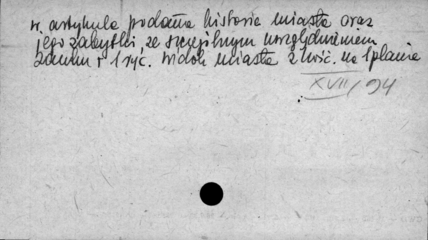 w. artykule podana historia miasta oraz
jego zabytki, ze szczególnym uwzględnieniem
zamku + 1 ryc. Widok miasta z kość. na I planie
XVII/94